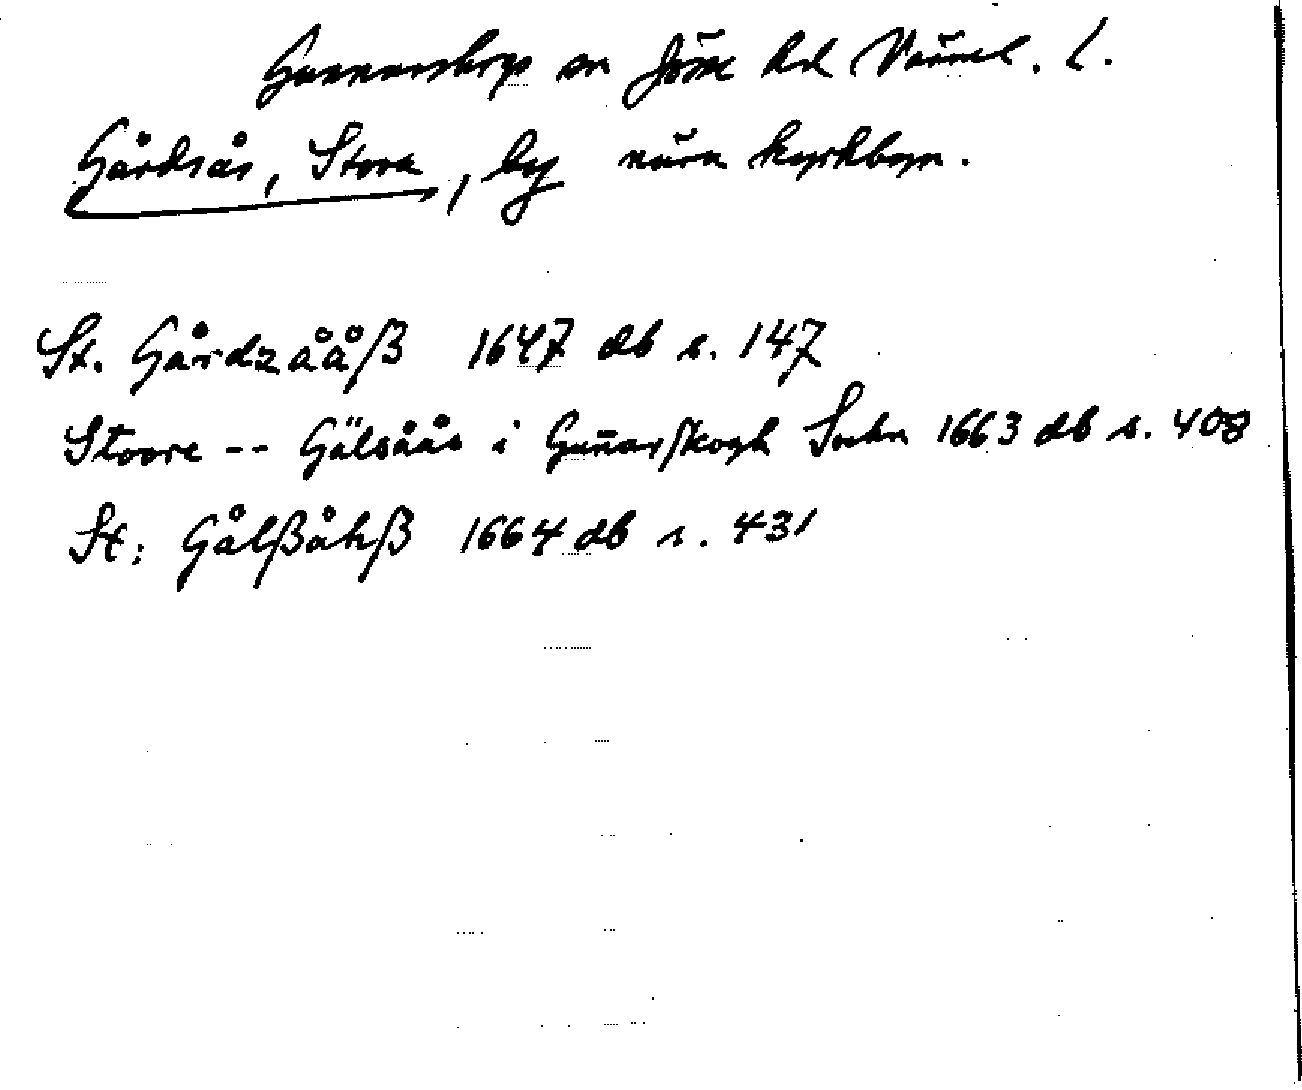 Gunnarskogs sn Jösse hd Värml. l.
Gårdsås, Stora, by nära kyrkbyn.
St. Gårdzååß 1647 db s. 147
Stoore -- Gälsåås i Gun̄arskogh Sochn 1663 db s. 408
St: Gålßåhß 1664 db s. 431